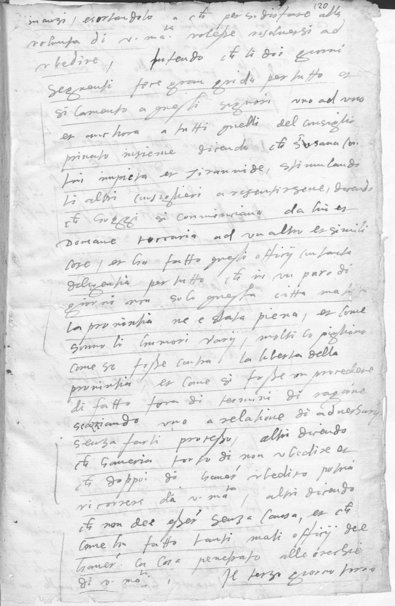 120
mandi, esortandolo a ch per sodisfare alla
volunta di v. ma.ta volesse risolversi ad
ubedire, Intendo ch li doi giorni
seguenti fece gran grido per tutto et
si lamento a questi signori uno ad uno
et anchora a tutti quelli del consiglio
privato insieme dicendo, ch si usava con
lui impieta et Tirannide, stimulando
li altri consiglieri a resentirsene, dicendo
ch hoggi si cominciava da lui et
Domane toccaria ad un altro et simili
cose, et ha fatto questi officij con tanta
diligentia per tutto ch in un paro di
giorni non solo questa citta ma
la provintia ne e stata piena, et come
sonno li humori varij, molti lo pigliano
come se fosse contra la liberta della
provintia, et come si fosse in procedere
di fatto fora di termini di ragione
scacciando uno a relatione di adversarij
senza farli processo, altri dicendo
ch haveria torto di non ubedire et
ch doppoi di haver ubedito potria
ricorrere da v. ma.ta, altri dicendo
ch non dee esser senza causa, et ch
come ha fatto tanti mali officij dee
haver la cosa penetrato alle orechie
di v. ma.ta. Il terzo giorno torno